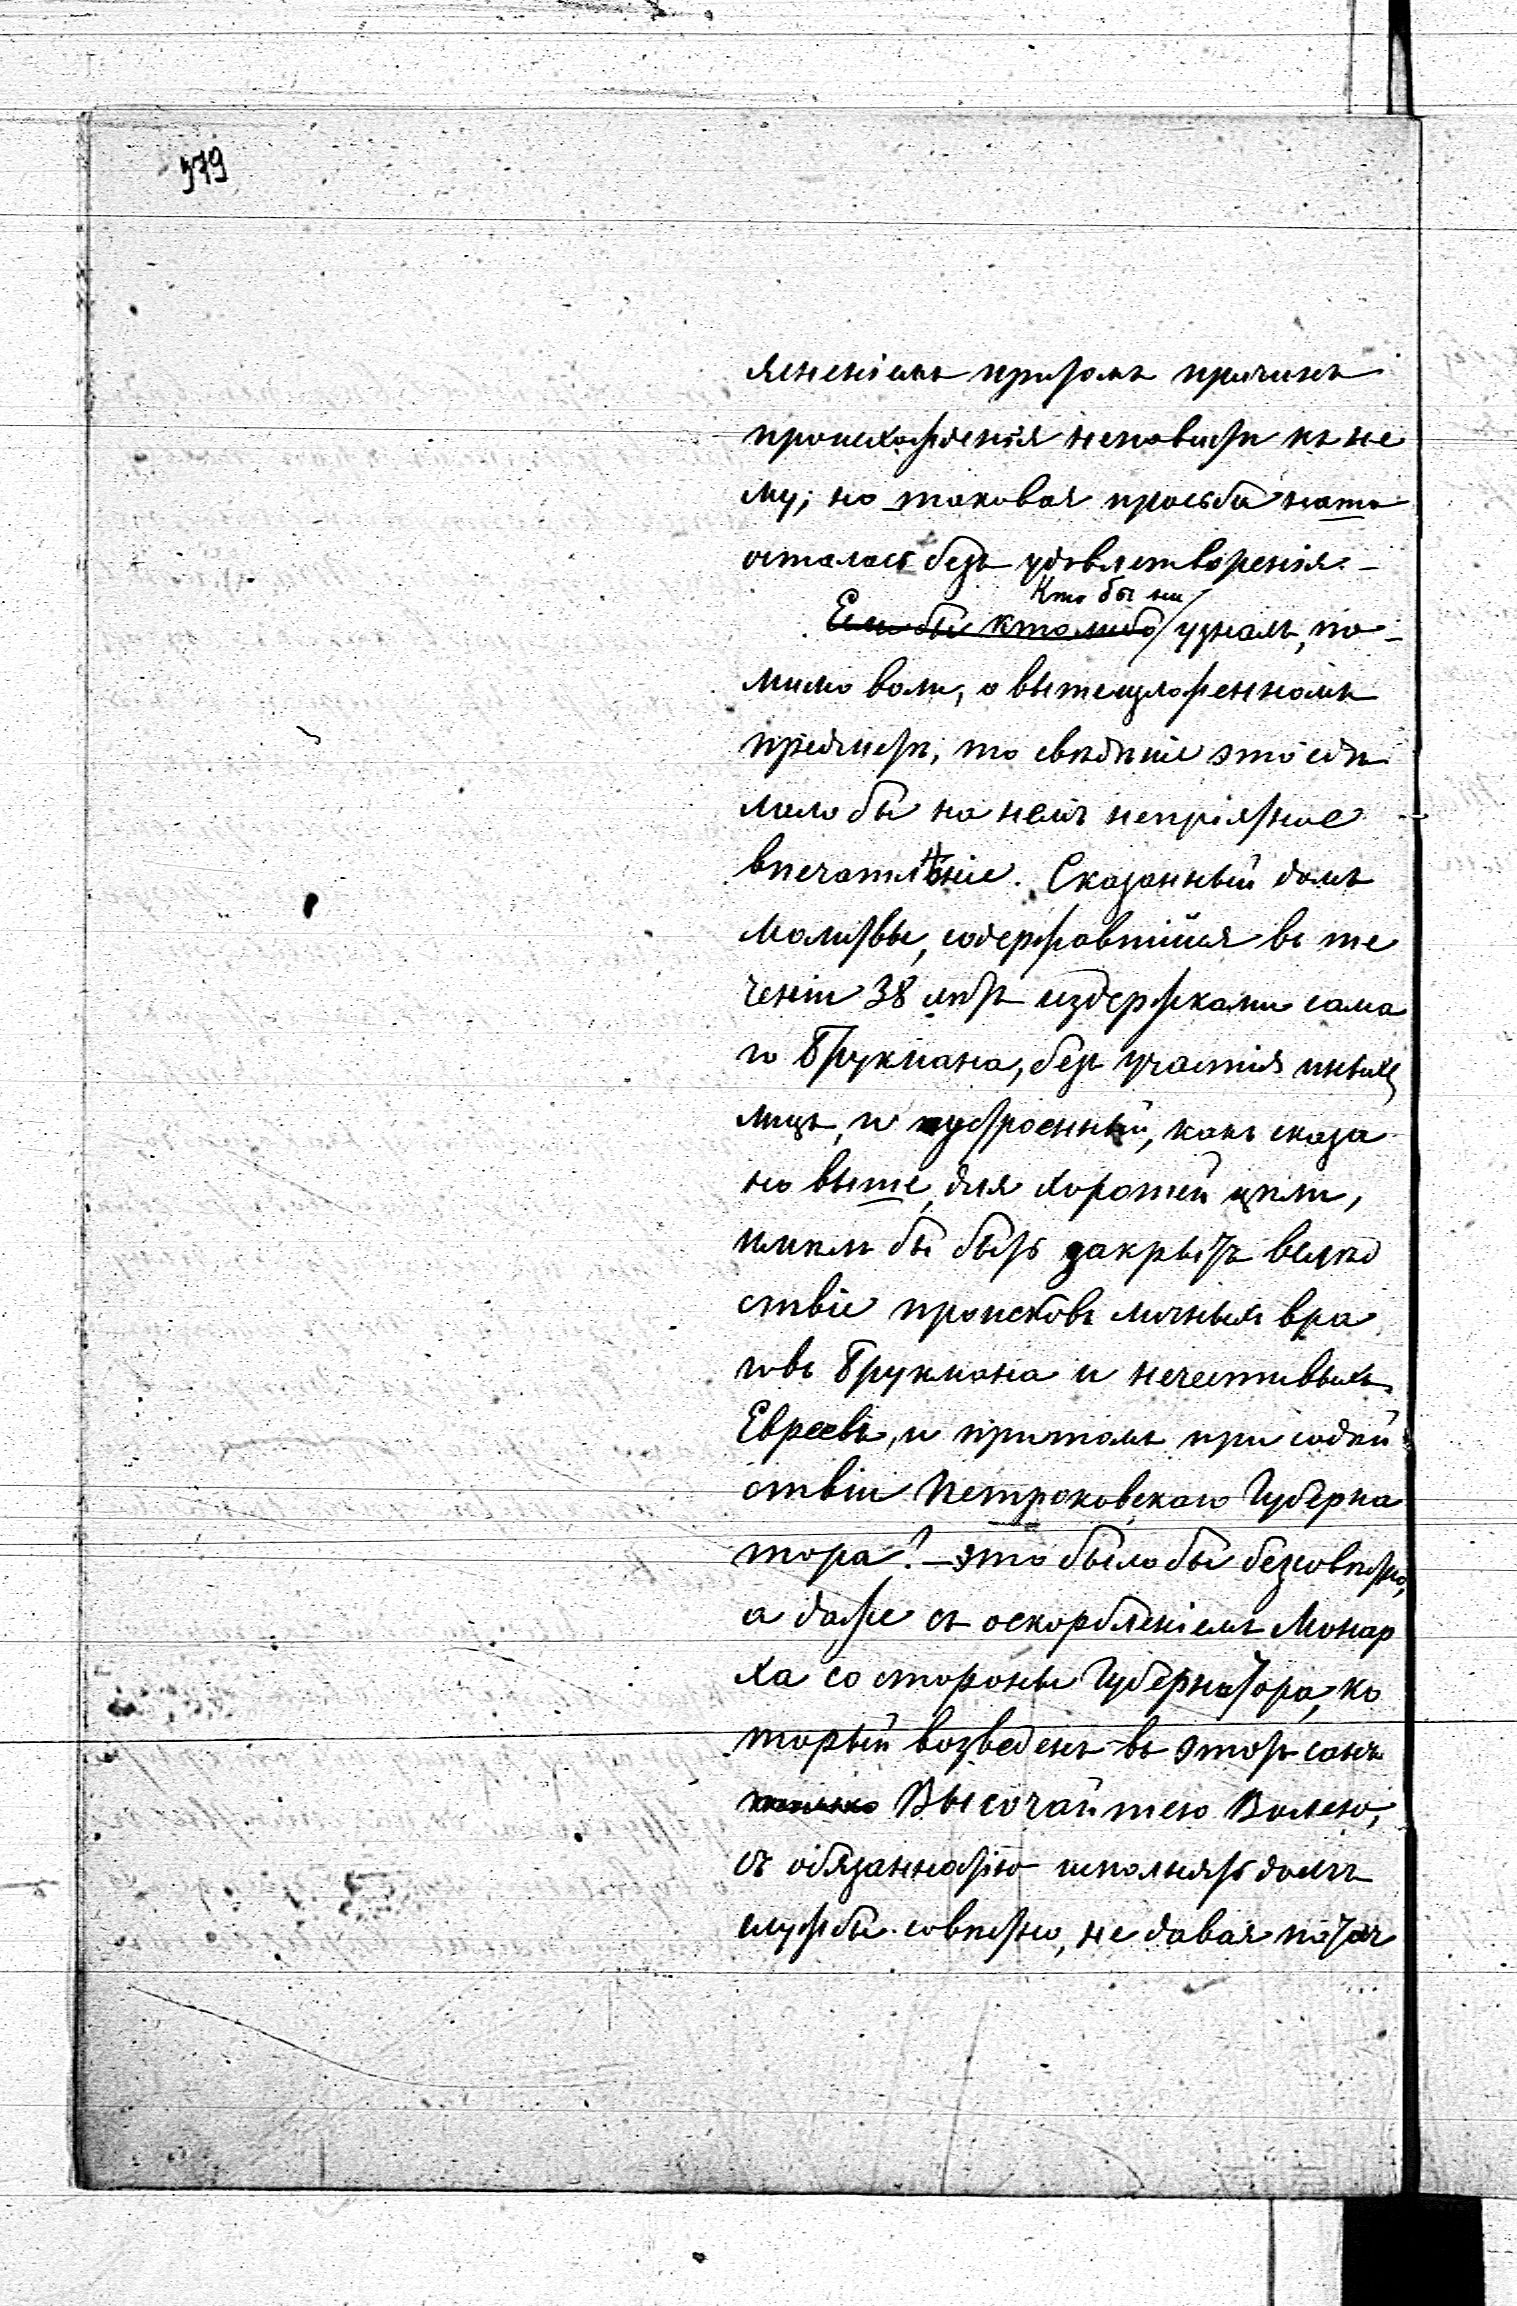 979
ясненіемъ притомъ причинъ
происхожденія ненависти къ не
му; но таковая просьба наша
осталась безъ удовлетворенія. —
Кто бы ни
Если бы кто либо узналъ, по-
мимо воли, о вышеизложенномъ
предметѣ, то свѣдѣніе это сдѣ
лало бы на немъ непріятное
впечатлѣніе. Сказанный домъ
молитвы, содержавшійся въ те
ченіи 38 лѣтъ издержками сама
го Брукмана, безъ участія иныхъ
лицъ, и устроенный, какъ сказа
но выше, для хорошей цѣли,
имѣлъ бы быть закрытъ вслѣд
ствіе происковъ личныхъ вра
говъ Брукмана и нечестивыхъ
Евреевъ, и притомъ при содѣй
ствіи Петроковскаго Губерна
тора? — это было бы безсовѣстно,
а даже съ оскорбленіемъ Монар
ха со стороны Губернатора, ко
торый возведенъ въ этотъ санъ
только Высочайшею Волею,
съ обязанностію исполнять долгъ
службы совѣстно, не давая